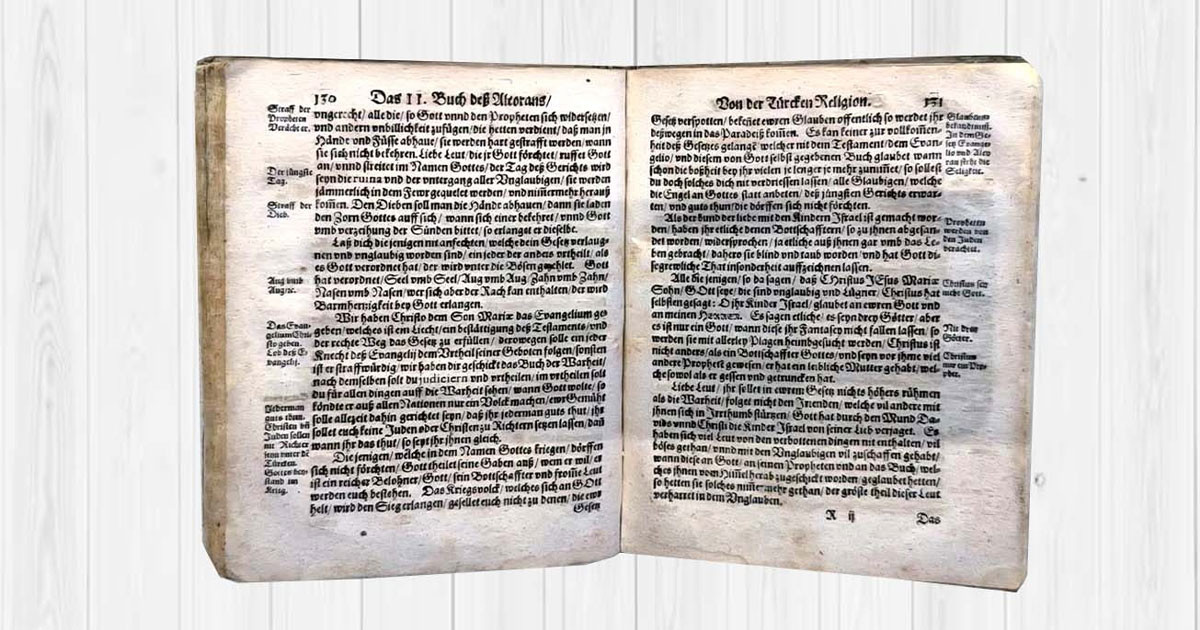 130 Das II. Buch deß Alcorans/
Straff der
Propheten
Verächter.
vngerecht/ alle die/ so Gott vnnd den Propheten sich widersetzen/
vnd andern vnbillichkeit zufügen/ die hetten verdient/ daß man jn
Hände vnd Füsse abhaue/ sie werden hart gestrafft werden/ wann
sie sich nicht bekehren. Liebe Leut/ die jr Gott förchtet/ ruffet Gott
an/ vnnd streitet im Namen Gottes/ der Tag deß Gerichts wird
Der jüngste
Tag.
seyn die ruina vnd der vntergang aller Vnglaubigen/ sie werden
jämmerlich in dem Fewr gequelet werden/ vnd nimmermehr herauß
Straff der
Dieb.
kom̃en. Den Dieben soll man die Hände abhauen/ dann sie laden
den Zorn Gottes auff sich/ wann sich einer bekehret/ vnnd Gott
vmb verzeihung der Sünden bittet/ so erlanget er dieselbe.
Laß dich die jenigen nit anfechten/ welche dein Gesetz verlaug-
nen vnd vnglaubig worden sind/ ein jeder der anders vrtheilt/ als
es Gott verordnet hat/ der wird vnter die Bösen gezehlet. Gott
Aug vmb
Auge.
hat verordnet/ Seel vmb Seel/ Aug vmb Aug/ Zahn vmb Zahn/
Nasen vmb Nasen/ wer sich aber der Rach kan enthalten/ der wird
Barmhertzigkeit bey Gott erlangen.
Wir haben Christo dem Son Mariæ das Evangelium ge-
Das Evan-
gelium Chri-
sto geben.
Lob deß E-
vangelij.
geben/ welches ist ein Liecht/ ein bestättigung deß Testaments/ vnd
der rechte Weg das Gesetz zu erfüllen/ derowegen solle ein jeder
Knecht deß Evangelij dem Vrtheil seiner Geboten folgen/ sonsten
ist er straffwürdig/ wir haben dir geschickt das Buch der Warheit/
nach demselben solt du judiciern vnd vrtheilen/ im vrtheilen soll
du für allen dingen auff die Warheit sehen/ wann Gott wolte/ so
Jederman
guts thun.
Christen vñ
Juden sollen
nit Richter
seyn vnter dẽ
Türcken.
Gottes bey-
stand im
Krieg.
köndte er auß allen Nationen nur ein Volck machen/ ewr Gemüht
solle allezeit dahin gerichtet seyn/ daß ihr jederman guts thut/ ihr
sollet euch keine Juden oder Christen zu Richtern setzen lassen/ dañ
wann jhr das thut/ so seyt ihr jhnen gleich.
Die jenigen/ welche in dem Namen Gottes kriegen/ dörffen
sich nicht förchten/ Gott theilet seine Gaben auß/ wem er wil/ er
ist ein reicher Belohner/ Gott/ sein Bottschaffter vnd from̃e Leut
werden euch beystehen. Das Kriegsvolck/ welches sich an GOtt
helt/ wird den Sieg erlangen/ gesellet euch nicht zu denen/ die ewr
Gesetz
Von der Türcken Religion. 131
Gesetz verspotten/ bekeñet ewren Glauben offentlich so werdet jhr
deßwegen in das Paradeiß kom̃en. Es kan keiner zur vollkom̃en-
heit deß Gesetzes gelangẽ/ welcher nit dem Testament/ dem Evan-
gelio/ vnd diesem von Gott selbst gegebenen Buch glaubet/ wann
schon die boßheit bey jhr vielen je lenger je mehr zunim̃et/ so sollest
du doch solches dich nit verdriessen lassen/ alle Glaubigen/ welche
die Engel an Gottes statt anbeten/ deß jüngsten Gerichts erwar-
ten/ vnd guts thun/ die dörffen sich nicht förchten.
Glaubens-
bekandtnuß.
In dem Ge-
setz Evange-
lio vnd Alco
ran steht die
Seligkeit.
Als der bund der liebe mit den Kindern Jsrael ist gemacht wor-
den/ haben jhr etliche denen Bottschafftern/ so zu jhnen abgesan-
det worden/ widersprochen/ ja etliche auß jhnen gar vmb das Le-
ben gebracht/ dahero sie blind vnd taub worden/ vnd hat Gott di-
se grewliche That insonderheit auffzeichnen lassen.
Propheten
werden von
den Juden
verachtet.
Alle die jenigen/ so da sagen/ daß CHristus JEsus Mariæ
Sohn/ GOtt seye/ die sind vnglaubig vnd Lügner/ Christus hat
selbsten gesagt: O jhr Kinder Jsrael/ glaubet an ewren Gott vnd
an meinen HERREN. Es sagen etliche/ es seyn drey Götter/ aber
es ist nur ein Gott/ wann diese jhr Fantasey nicht fallen lassen/ so
werden sie mit allerley Plagen heimbgesucht werden/ Christus ist
nicht anders/ als ein Bottschaffter Gottes/ vnd seyn vor jhme viel
andere Prophetẽ gewesen/ er hat ein leibliche Mutter gehabt/ wel-
che sowol als er gessen vnd getruncken hat.
Christus sey
nicht Gott.
Nit drey
Götter.
Christus
nur ein Pro-
phet.
Liebe Leut/ jhr sollet in ewrem Gesetz nichts höhers rühmen
als die Warheit/ folget nicht den Jrrenden/ welche vil andere mit
jhnen sich in Jrrthumb stürtzen/ Gott hat durch den Mund Da-
vids vnnd Christi die Kinder Jsrael von seiner Lieb verjaget. Es
haben sich viel Leut von den verbottenen dingen nit enthalten/ vil
böses gethan/ vnnd mit den Vnglaubigen vil zuschaffen gehabt/
wann diese an Gott/ an seinen Propheten vnd an das Buch/ wel-
ches jhnen vom Him̃el herab zugeschickt worden/ geglaubet hetten/
so hetten sie solches nim̃ermehr gethan/ der gröste theil dieser Leut
verharret in dem Vnglauben.
R ij Das